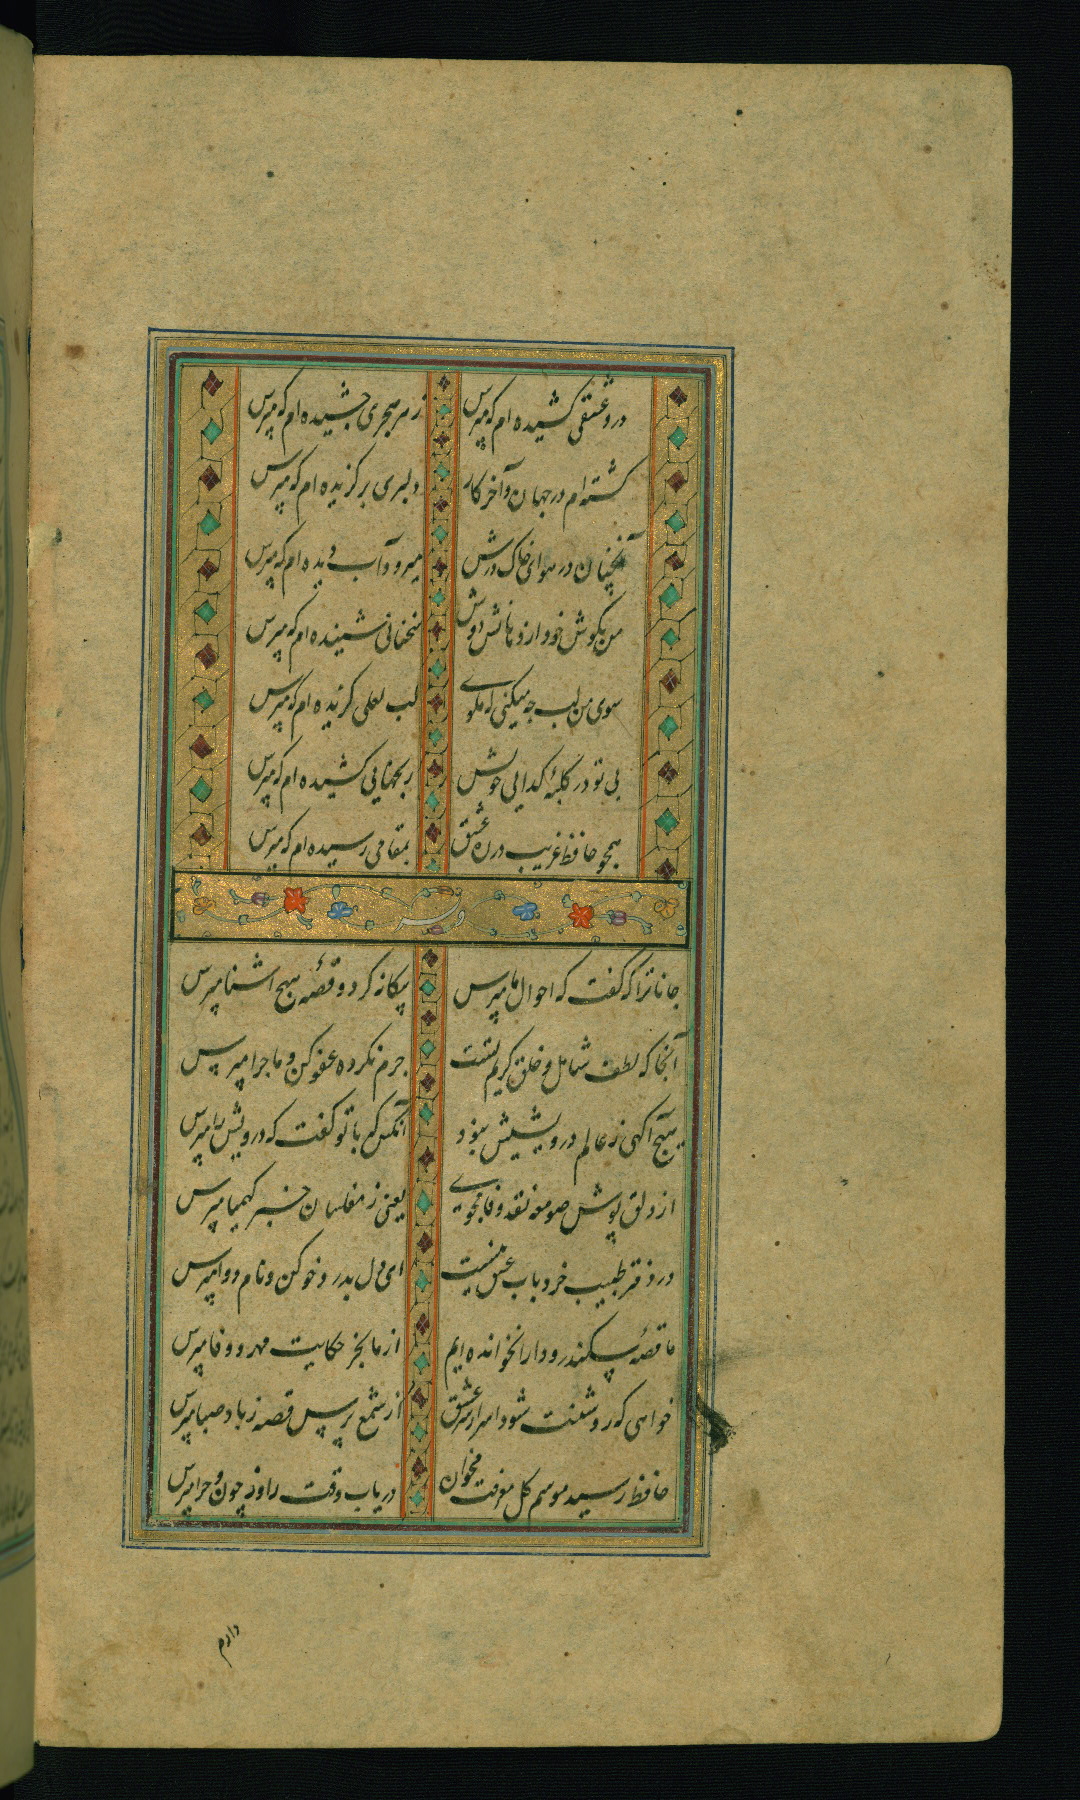 درد عشقی کشیده ام که مپرس زهر هجری چشیده ام که مپرس
کشته ام در جهان و آخر کار دلبری برگزیده ام که مپرس
آنچنان در هوای خاک درش میرود آب دیده ام که مپرس
من بگوش خود از دهانش دوش سخنانی شنیده ام که مپرس
سوی من لب چه میکنی که مگوی لب لعلی گزیده ام که مپرس
بی تو در کلبهٔ کدایی خویش رنجهایی کشیده ام که مپرس
همچو حافظ غریب در ره عشق بمقامی رسیده ام که مپرس
وله
جانا ترا که گفت که احوال ما مپرس بیکانه کرد و قصهٔ هیچ اشنا مپرس
آنجا که لطف شامل و خلق کریم تست جرم نکرده عفو کن و ماجرا مپرس
هیچ آکهی ز عالم درویشیش نبود آنکس که با تو گفت که درویش را مپرس
از دلق پوش صومعه نقد وفا مجوی یعنی ز مفلسان خبر کیمیا مپرس
در دفتر طبیب خرد باب عشق نیست ای دل بدرد خو کن و نام دوا مپرس
ما قصهٔ سکندر و دارا نخوانده ایم از ما بجز حکایت مهر و وفا مپرس
خواهی که روشنت شود اسرار عشق از شمع پرس قصه ز باد صبا مپرس
حافظ رسید موسم کل معرفت مخوان دریاب وقت را وز چون و چرا مپرس
دارم